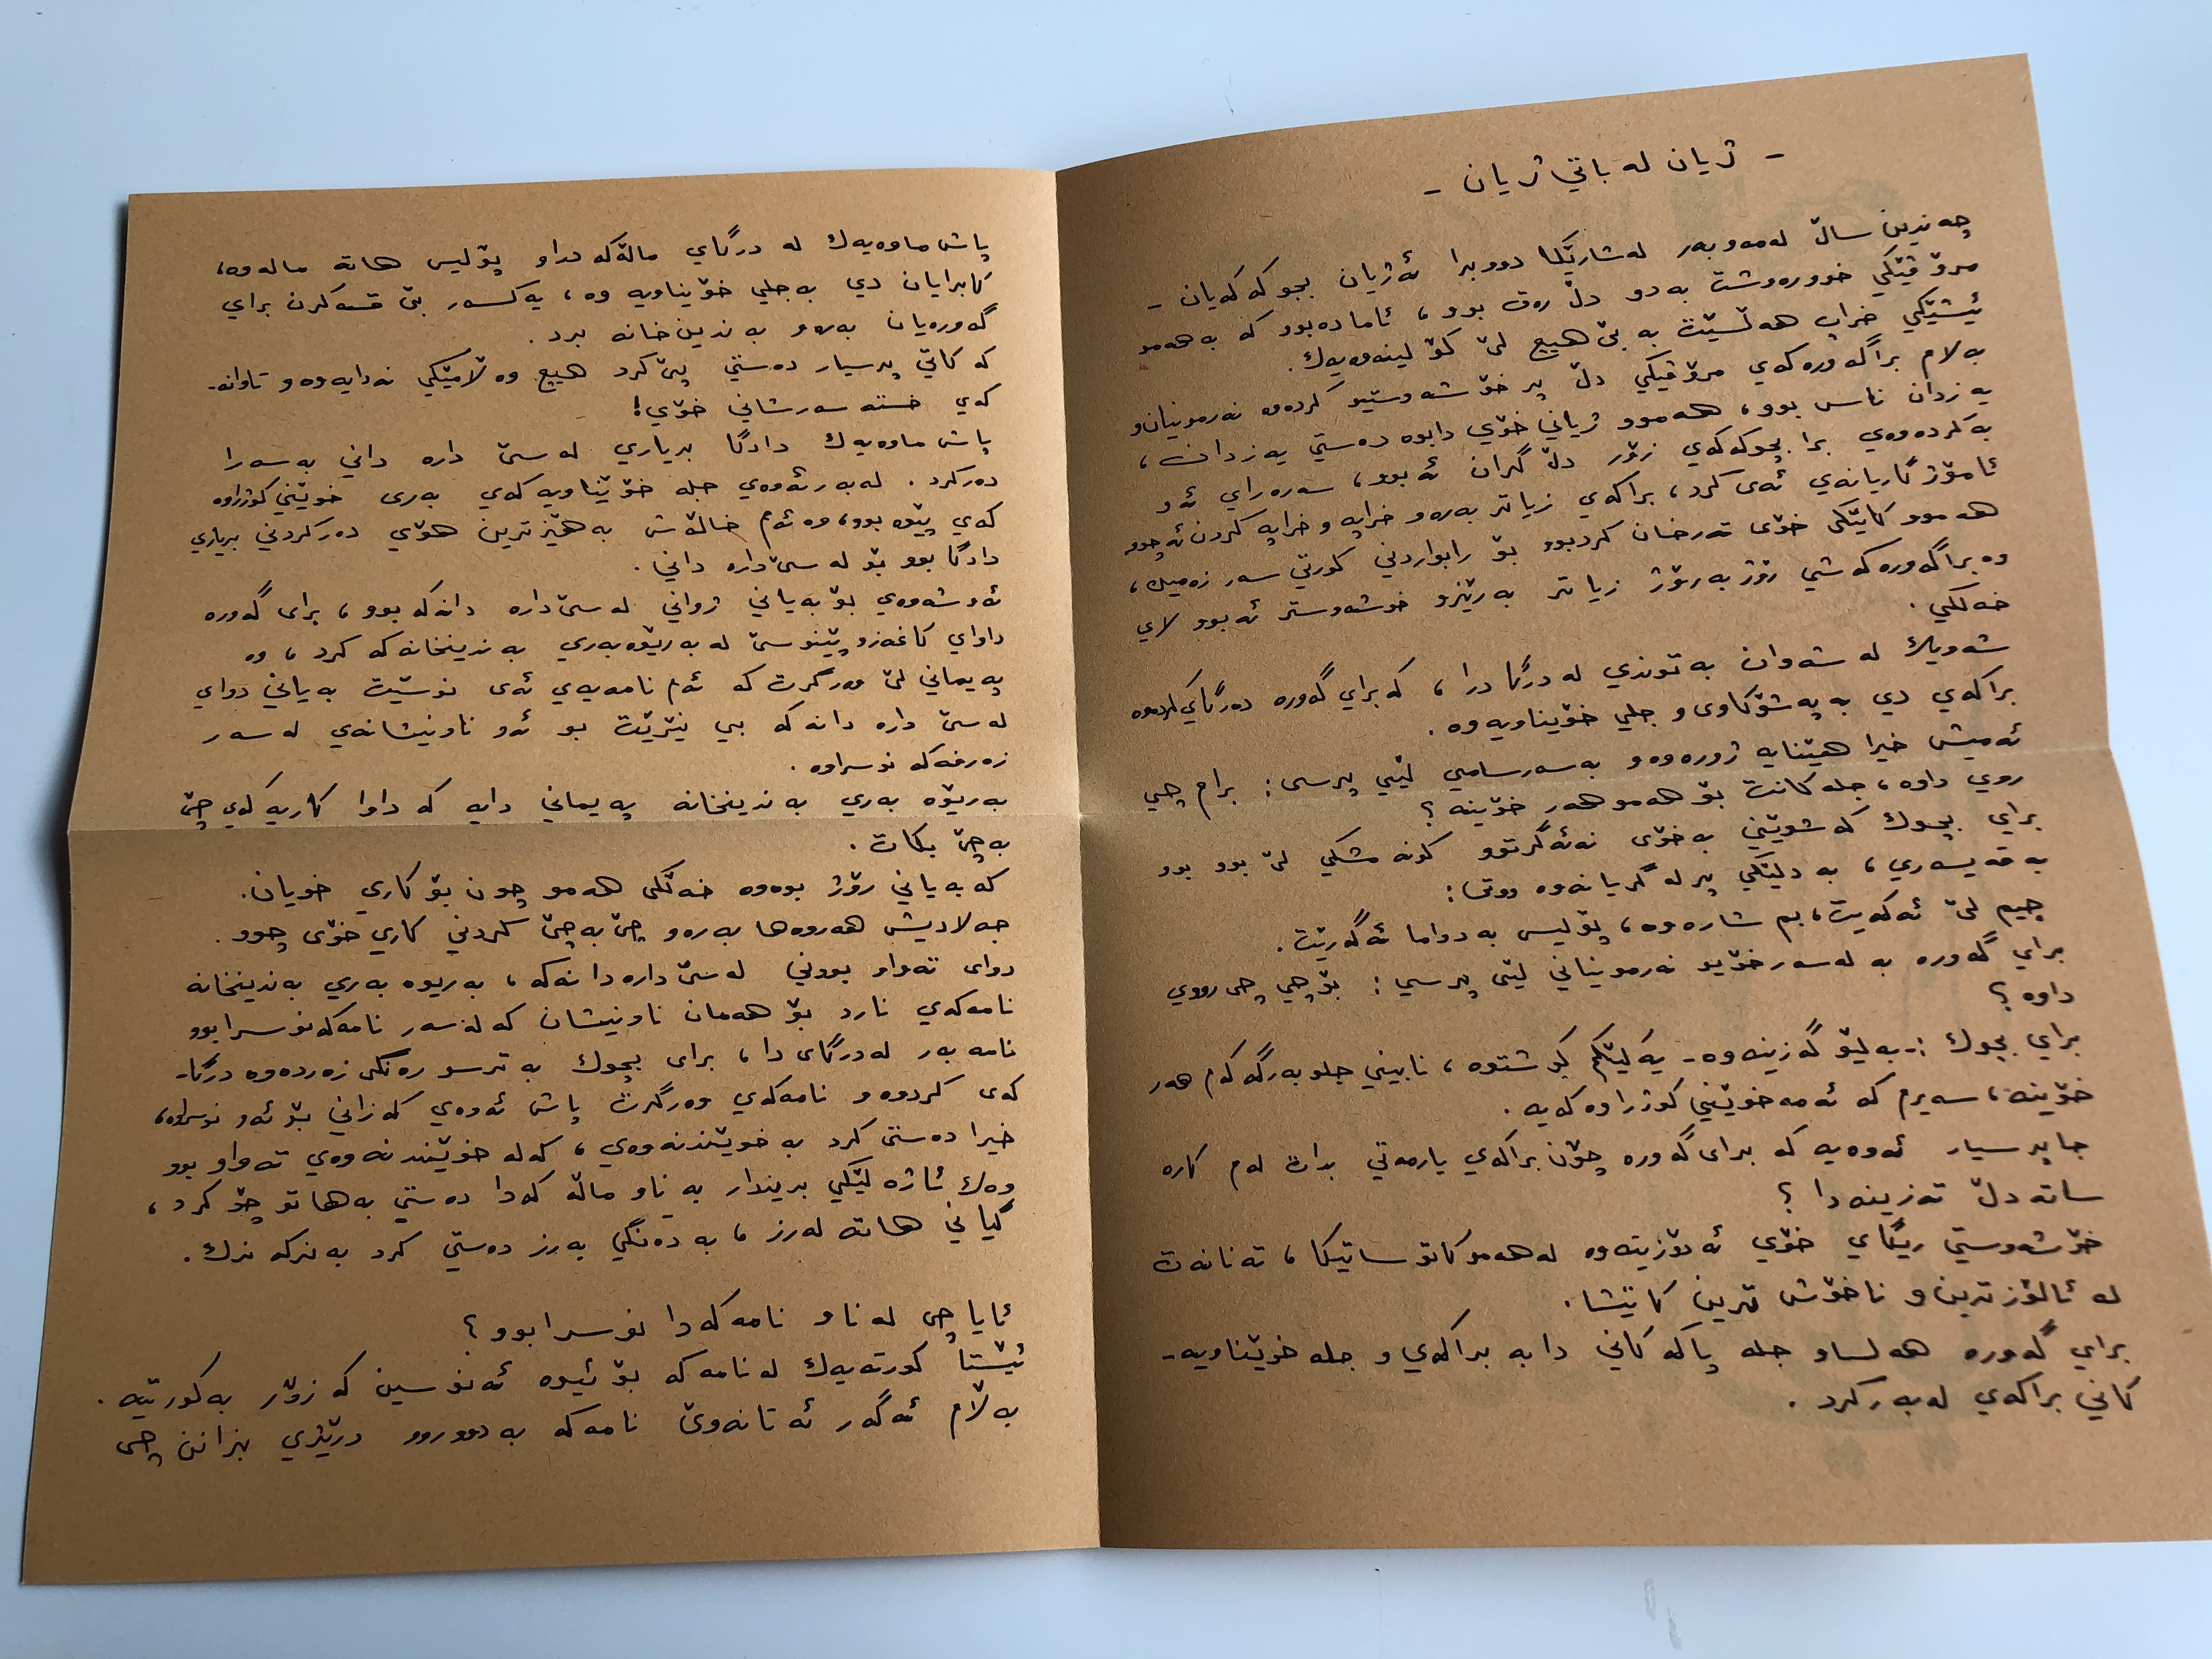 - ژیان لە باتي ژیان -
چەندین ساڵ لەمەوبەر لەشارێکا دووبرا ئەژیان بچوکەکەیان -
مرۆڤێکي خوورەوشت بەدو دڵ رەق بوو، ئامادەبوو کە بەهەمو
ئیشێکي خراپ هەڵسێت بە بێ هیچ لێ کۆڵینەوەیەك.
بەلام براگەورەکەي مرۆڤێکي دڵ پر خۆشەوستیو کردەوە نەرمونیانو
یەزدان ناس بوو، هەموو ژیاني خۆي دابوە دەستي یەزدان،
بەکردەوەي برا بچوکەکەي زۆر دڵ گران ئەبوو، سەرەراي ئەو
ئامۆژگاریانەي ئەی کرد، براکەي زیاتر بەرەو خراپە و خراپە کردن ئەچوو
هەموو کاتێکی خۆی تەرخان کردبوو بۆ رابواردني کورتي سەر زەمین،
وە براگەورەکەشي رۆژ بەرۆژ زیاتر بەرێزو خوشەوستر ئەبوو لاي
خەلکي.
شەویك لە شەوان بەتوندي لەدرگا درا، کەبراي گەورە دەرگاي کردەوە
براکەي دي بە پەشۆکاوی و جلي خۆیناویەوە.
ئەمیش خیرا هێنایە ژورەوەو بەسەرسامي لێي پرسی: برام چي
روي داوە، جلەکانت بۆ هەموهەر خۆینە؟
براي بچوك کەشوێني بەخۆی نەئەگرتوو کونە مشکي لێ بوو بوو
بە قەیسەري، بە دلێکي پر لەگریانەوە ووتی:
چیم لێ ئەکەیت، بم شارەوە، پۆلیس بەدواما ئەگەرێت.
براي گەورە بە لەسەرخۆیو نەرمونیاني لێی پرسي: بۆچي چی رووي
داوە؟
براي بچوك :- بەلێو گەزینەوە - یەکێکم کوشتوە، نابیني جلوبەرگەکەم هەر
خۆینە، سەیرم کە ئەمەخوێني کوژراوەکەیە.
جاپرسیار ئەوەیە کە برای گەورە چۆن براکەي یارمەتي بدات لەم کارە
ساتە دڵ تەزینەدا؟
خۆشەوستي ریگاي خۆي ئەدۆزیتەوە لەهەموکاتو ساتیکا، تەنانەت
لە ئالۆزترین و ناخۆش ترین کاتیشا.
براي گەورە هەلساو جلە پاکەکاني دابە براکەي و جلە خوێناویە -
کاني براکەي لەبەرکرد.
پاش ماوەیەك لە درگاي ماڵەکەدراو پۆلیس هاتە مالەوە،
کابرایان دي بەجلي خۆیناویەوە، یەکسەر بێ قسەکرن براي
گەورەیان بەرەو بەندین خانە برد.
کە کاتي پرسیار دەستي پێ کرد هیچ وەڵامێکي نەدایەوەو تاوانە-
کەي خستە سەرشاني خۆي!
پاش ماوەیەك دادگا بریاري لەسێ دارە داني بەسەرا
دەرکرد. لەبەرئەوەي جلە خۆێناویەکەي بەری خوێني کوژراوە
کەي پێوە بوو، وە ئەم خاڵەش بەهێزترین هۆي دەرکردني بریاري
دادگا بوو بۆ لەسێ دارە داني.
ئەو شەوەي بۆ بەیاني ژواني لەسێ دارە دانەکە بوو، برای گەورە
داواي کاغەزو پێنوسێ لە بەریۆەبەري بەندینخانەکە کرد، وە
پەیماني لێ وەرگرت کە ئەم نامەیەي ئەی نوسێت بەیاني دواي
لەسێ دارە دانەکە بي نێرێت بو ئەو ناونیشانەي لەسەر
زەرفەکە نوسراوە.
بەریۆە بەري بەندینخانە پەیماني دایە کە داوا کاریەکەي جێ
بەجێ بکات.
کەبەیاني رۆژ بوەوە خەڵکی هەمو چون بۆ کاري خویان.
جەلادیش هەروەها بەرەو جێ بەجێ کردني کاري خۆی چوو.
دوای تەواو بووني لەسێ دارە دانەکە، بەریوە بەري بەندینخانە
نامەکەي نارد بۆ هەمان ناونیشان کە لەسەر نامەکەنوسرابوو
نامە بەر لەدرگای دا، برای بچوك بە ترسو رەنگی زەردەوە درگا-
کەی کردوە و نامەکەي وەرگرت پاش ئەوەي کەزاني بۆ ئەو نوسراوە،
خیرا دەستی کرد بە خوێندنەوەي، کەلە خۆێندنەوەي تەواو بوو
وەك ئاژەڵێکي بریندار بە ناو ماڵە کەدا دەستي بەهاتو چۆ کرد،
گیاني هاتە لەرز، بە دەنگي بەرز دەستي کرد بەنرکە نرك.
ئایا چی لەناو نامەکەدا نوسرابوو؟
ئێستا کورتەیەك لەنامەکە بۆ ئیوە ئەنوسین کەزۆر بەکورتیە.
بەڵام ئەگەر ئەتانەوێ نامەکە بەدوورو درێژي بزانن چی